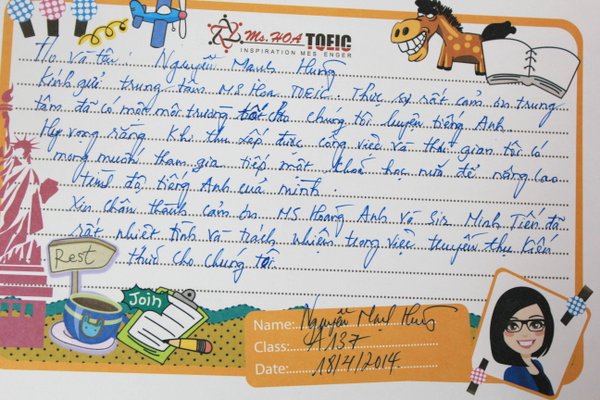 Ms. HOA TOEIC
INSPIRATION MES ENGER
Họ và tên: Nguyễn Mạnh Hùng
Kính gửi trung tâm MS Hoa TOEIC. Thực sự rất cảm ơn trung
tâm đã có một môi trường tốt cho chúng tôi luyện tiếng Anh
Hy vọng rằng khi thu xếp được công việc và thời gian tôi có
mong muốn tham gia tiếp một khoá học nữa để nâng cao
trình độ tiếng Anh của mình.
Xin chân thành cảm ơn MS Hoàng Anh và Sir Minh Tiến đã
rất nhiệt tình và trách nhiệm trong việc truyền thụ kiến
thức cho chúng tôi.
Rest
Join
Name: Nguyễn Mạnh Hùng
Class: A137
Date: 18/4/2014